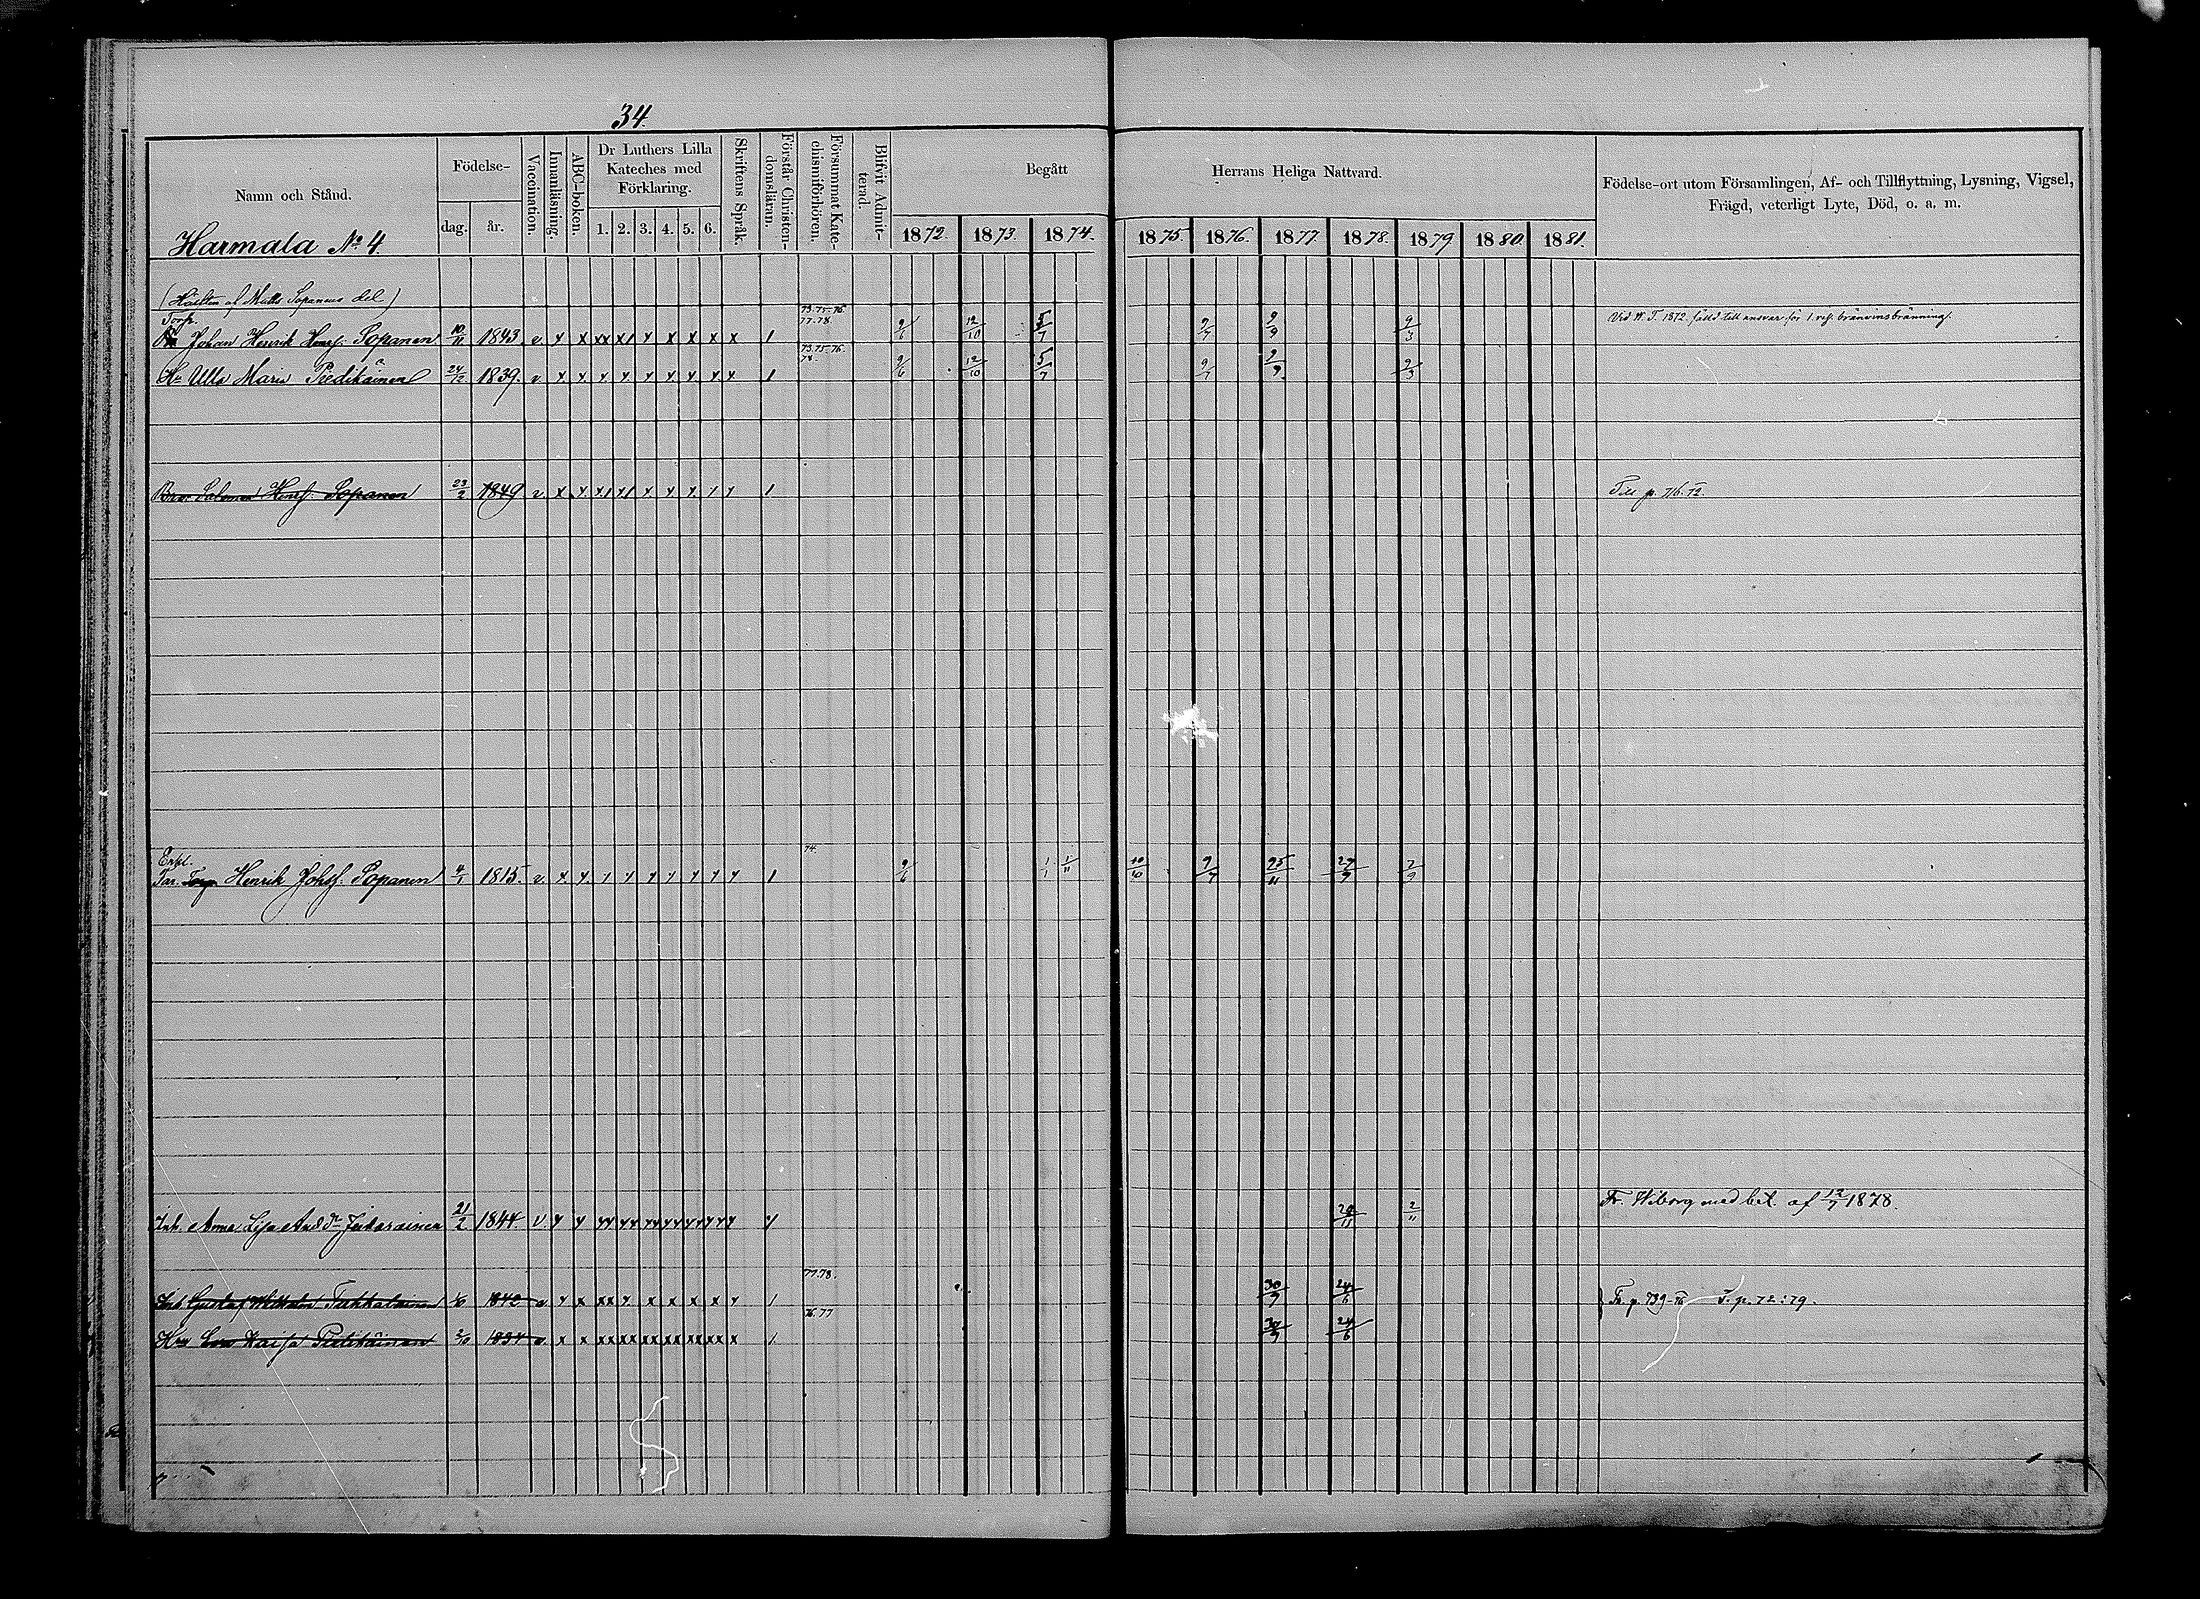 34.
Namn och Stånd.
Födelse-
dag.
år.
Vaccination.
Innanläsning.
ABC-boken.
Dr Luthers Lilla
Kateches med
Förklaring.
1. 2. 3. 4. 5. 6.
Skriftens Språk.
Förstår Christen-
domsläran.
Försummat Kate-
chismiförhören.
Blifvit Admit-
terad.
Begått
Herrans Heliga Nattvard.
1872. 1873. 1874. 1875. 1876. 1877. 1878. 1879 1880. 1881.
Födelse-ort utom Församlingen, Af- och Tillflyttning, Lysning, Vigsel,
Frägd, veterligt Lyte, Död, o. a. m.
Harmala No 4.
(Hälften af Matts Sopanens del)
Torp. 73.75-76. 77.78.
Johan Henrik Henrs: Sopanen 10/11 1843. v. x x xx x1 x x x x x 1 9/6 12/10 5/7 9/7 9/9 9/3 Vid W. T. 1872 fälld till ansvar för 1. resan bränvinsbränning.
73.75-76. 78.
Hu Ulla Maria Piedikäinen 24/12 1839. v x x x x x x x x x 1 9/6 12/10 5/7 9/7 9/9 9/3
Bror Salomon Henrs: Sopanen 23/2 1849 v. x x x1 x1 x x x x x 1 Till p. 716. 72.
Enkl. 74.
Far. Torp Henrik Johs: Sopanen 1815. v. x x x x x x x x x 1 9/6 1/1 1/11 10/10 9/7 25/11 29/9 2/9
Inh. Anna Lisa And dr 21/2 1844 v x x xx xx xx xx xx xx x x 29/11 2/11 Fr. Wiborg med bet. af 12/7 1878.
77.78.
Inh Gustaf Wilhelm Tukkalainen 1842 v x x xx x x x x x x 1 30/9 24/6 Fr. p. 739-76 T. p. 72:79.
76.77
Hu Eva Kaisa Piedikäinen 1834 v x x xx xx xx xx xx xx x 1 30/9 24/6